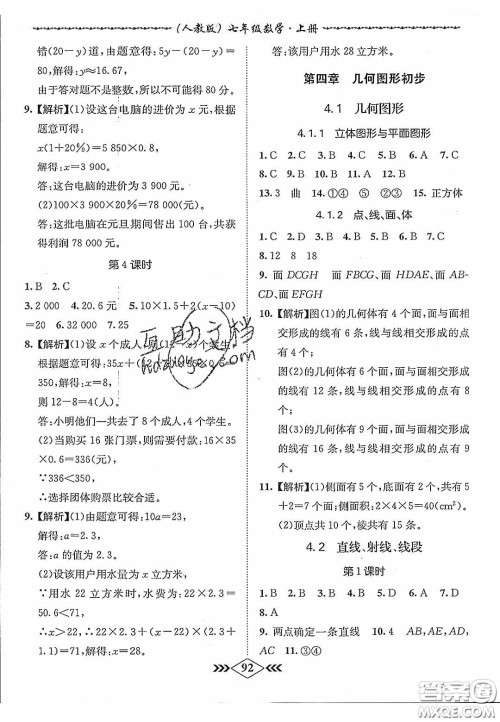 (人教版) 七年级数学·上册
错(20－y)道，由题意得：5y－(20－y)＝80，
解得：y≈16.67，
由于答对题不是整数，所以不可以得80分．
9.【解析】(1)设这台电脑的进价为x元，根据
题意可得：
x(1＋20%)＝5 850×0.8，
解得：x＝3 900．
答：这台电脑的进价为3 900元．
(2)3 900×20%×100＝78 000(元)．
答：这批电脑在元旦期间共售出100台，共
获得利润78 000元．
第4课时
1. B 2. C
3. 2 000 4. 20.6元 5. 10×1.5＋2(x－10)
＝20 6. 32 000 7. 25
8.【解析】(1)设x个成人，
题意可得：35x＋
解得：x＝8，
则12－8＝4(人)．
答：小明他们一共去了8个成人，4个学生．
(2)当购买16张门票，可得费用：16×35
×0.6＝336(元)．
∵336＜350，
∴选择团体购票比较合适．
9.【解析】(1)由题意可得：10a＝23，
解得：a＝2.3．
答：a的值为2.3．
(2)设该用户用水量为x立方米．
∵用水22立方米时，水费为：22×2.3＝
50.6＜71，
∴x＞22，∴22×2.3＋(x－22)×(2.3＋
1.1)＝71，解得：x＝28．
答：该用户用水28立方米．
第四章 几何图形初步
4.1 几何图形
4.1.1 立体图形与平面图形
1. C 2. C 3. D 4. B 5. B 6. A 7. C
8. D 9. C 10. A 11. B 12. B
13. 3 曲 14. ①④ ⑤ 15. 正方体
4.1.2 点、线、面、体
1. C 2. D 3. B 4. C 5. B 6. A 7. C
8. 12 8 18
9. 面DCGH 面FBCG、面HDAE、面AB-
CD、面EFGH
10.【解析】图(1)的几何体有4个面，面与面
相交形成的线有6条，线与线相交形成的点
有4个；
图(2)的几何体有6个面，面与面相交形成
的线有12条，线与线相交形成的点有8
个；
图(3)的几何体有6个面，面与面相交形成
的线有10条，线与线相交形成的点有6
个．
11.【解析】(1)侧面有5个，底面有2个，共有5
＋2＝7个面；侧面积：2×4×5＝40(cm²)．
(2)顶点共10个，棱共有15条．
4.2 直线、射线、线段
第1课时
1. B 2. A 3. A 4. D 5. A 6. B 7. D
8. A
9. 两点确定一条直线 10. 4 AB，AE，AD，
AC 11. ③④
92